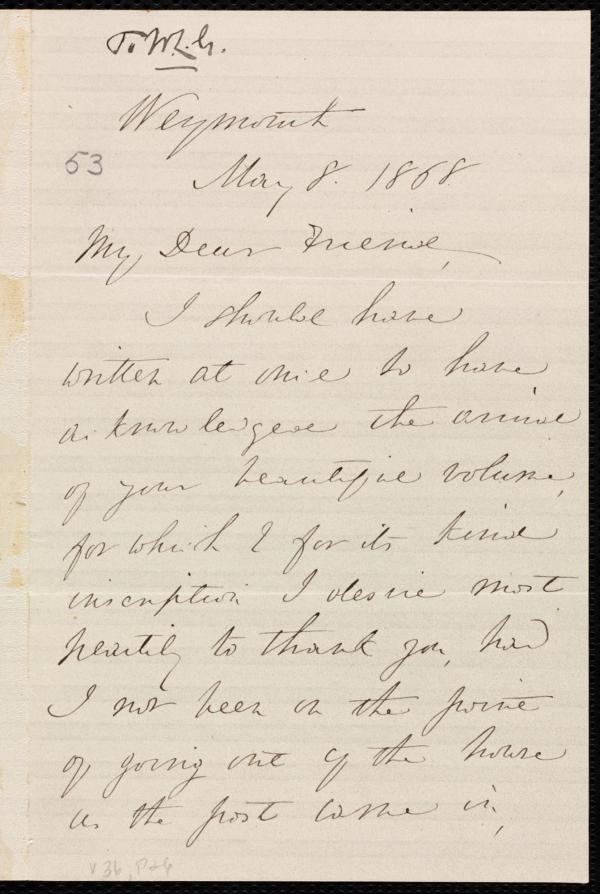 To W.L.G.
Weymouth
53
May 8. 1868.
My Dear Friend,
I should have
written at once to have
acknowledged the arrival
of your beautiful volume,
for which & for its kind
inscription I desire most
heartily to thank you, had
I not been on the point
of going out of the house
as the post came in,
v 36, p26